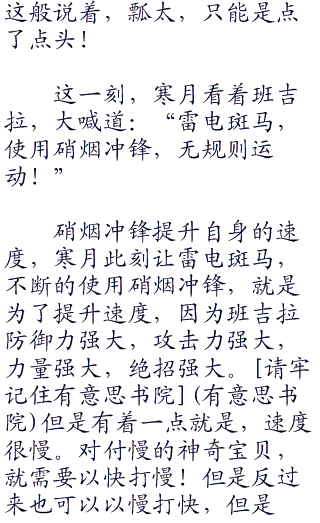 这般说着，瓢太，只能是点
了点头！
这一刻，寒月看着班吉
拉，大喊道：“雷电斑马，
使用硝烟冲锋，无规则运
动！”
硝烟冲锋提升自身的速
度，寒月此刻让雷电斑马，
不断的使用硝烟冲锋，就是
为了提升速度，因为班吉拉
防御力强大，攻击力强大，
力量强大，绝招强大。[请牢
记住有意思书院](有意思书
院)但是有着一点就是，速度
很慢。对付慢的神奇宝贝，
就需要以快打慢！但是反过
来也可以以慢打快，但是